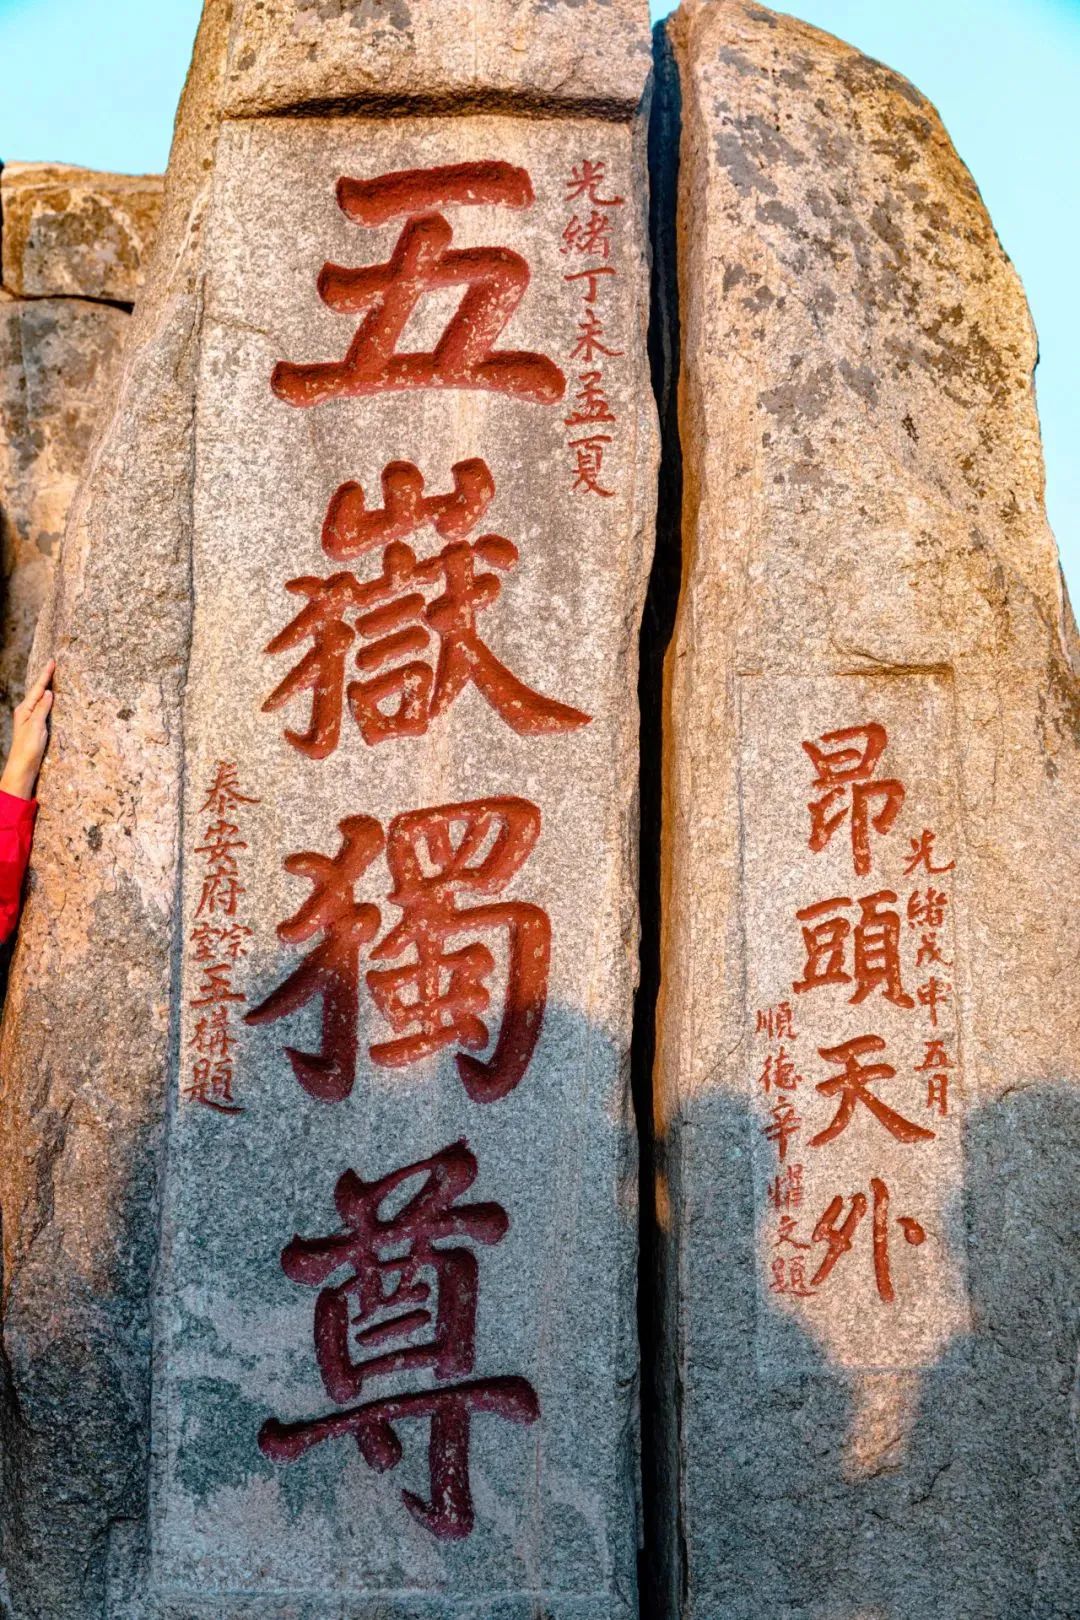 五嶽獨尊
光緒丁未孟夏
泰安府宗室玉構題
昂頭天外
光緒戊申五月
順德辛耀文題